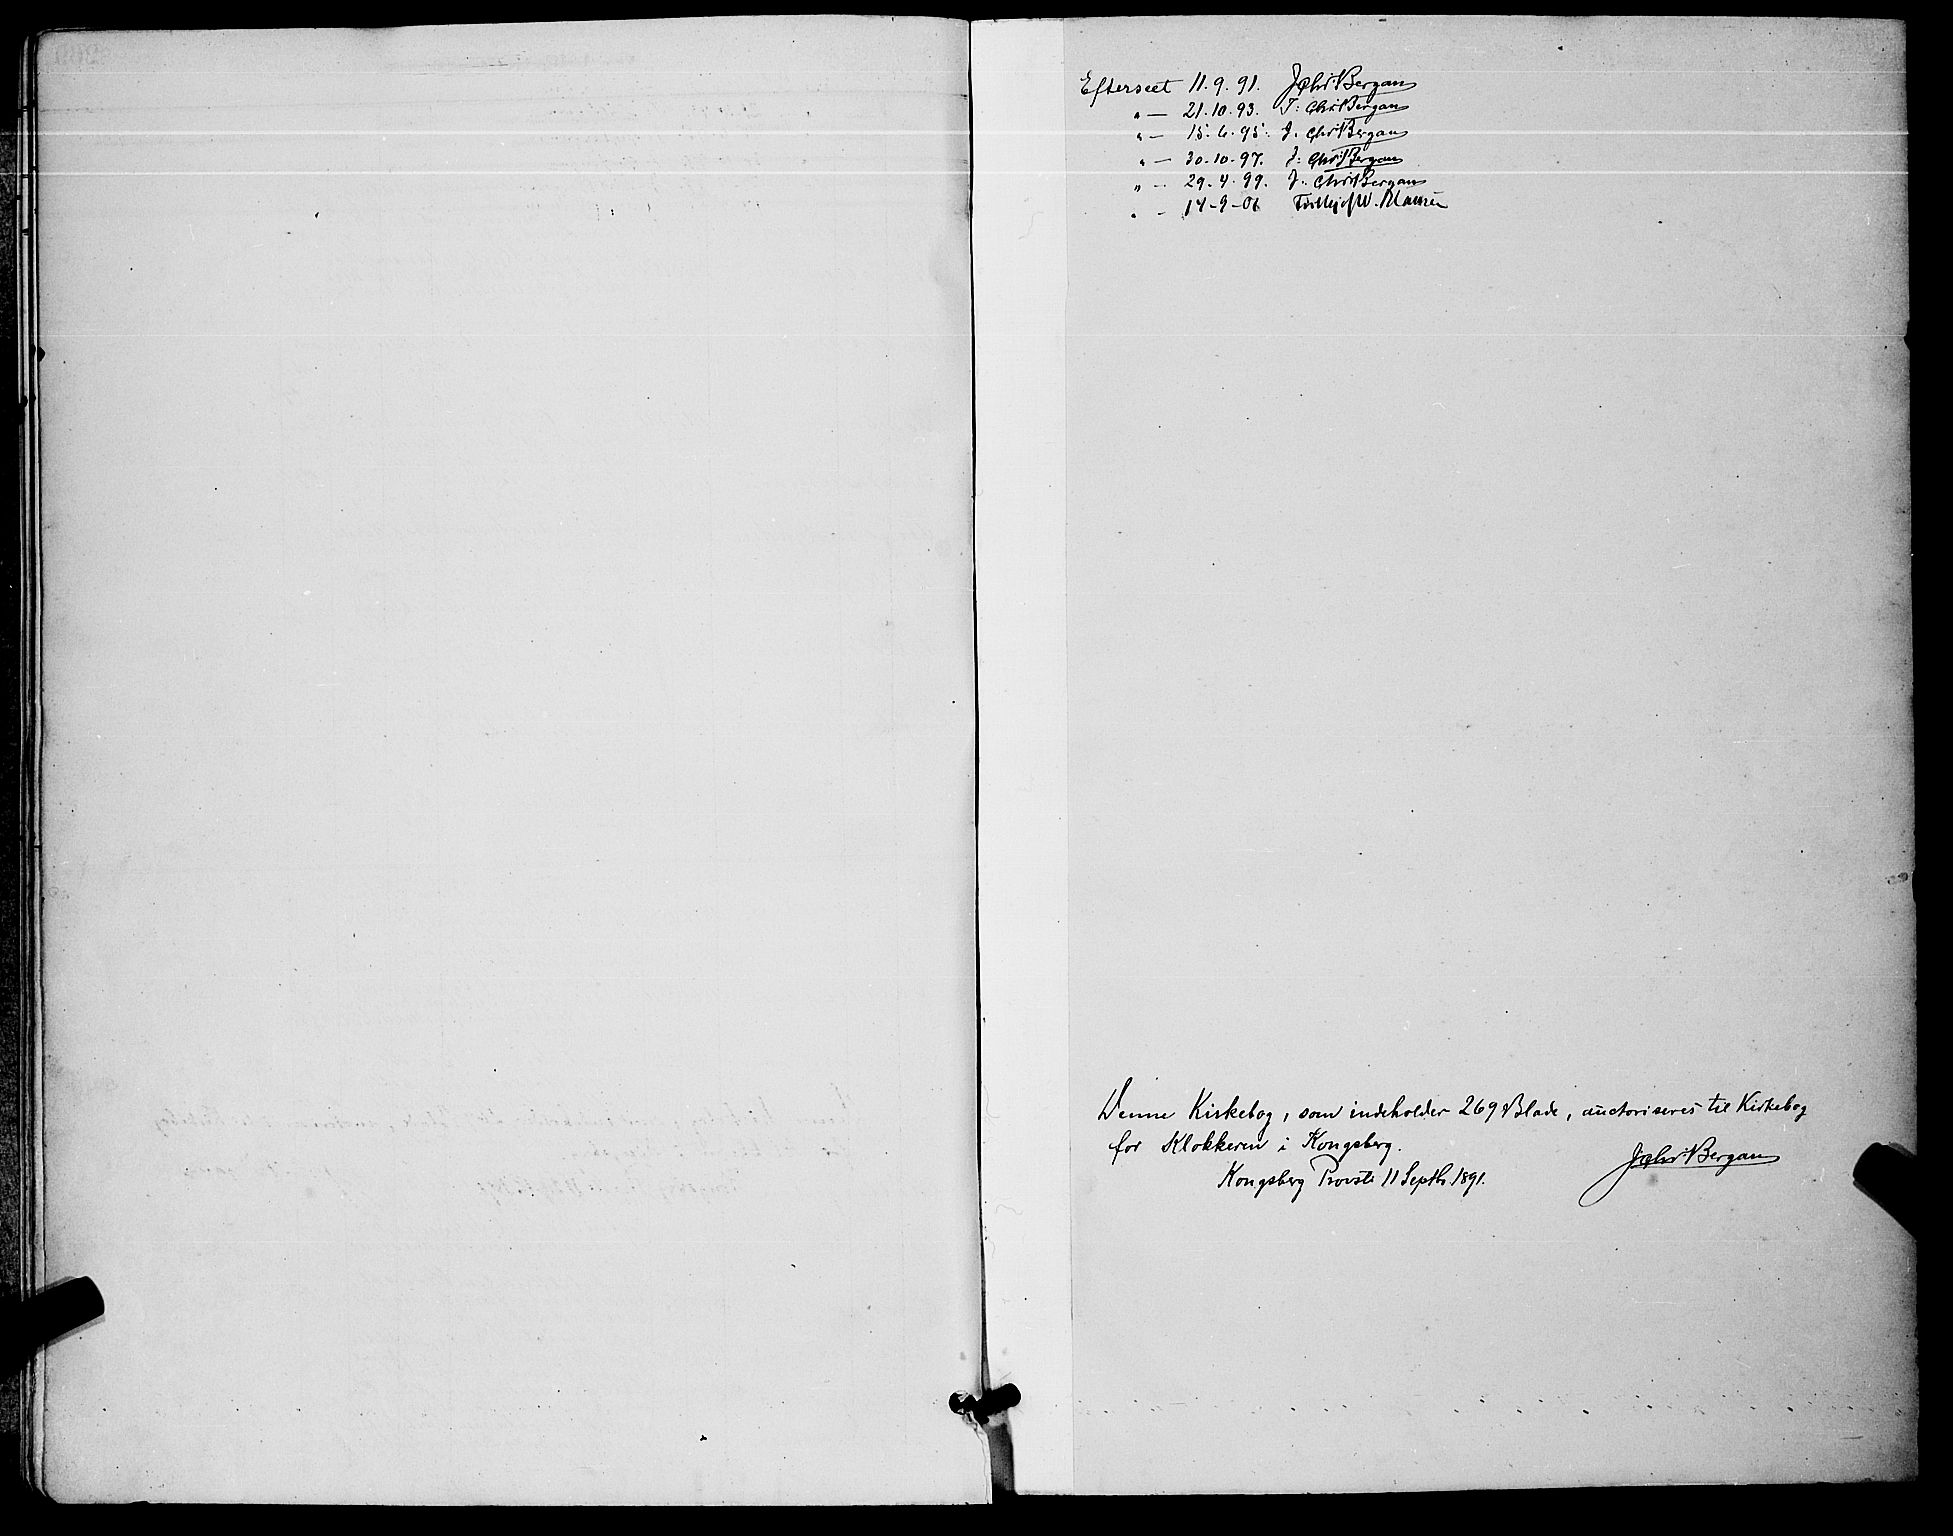 Efterseet 11.9.91. J Chr. Bergan
" — 21.10.93. J: Chr. Bergan
" — 15.6.95. J. Chr. Bergan
" — 30.10.97. J: Chr. Bergan
" — 29.4.99. J: Chr. Bergan
" - 14-9-06
Denne Kirkebog, som indeholder 269 Blade, auctoriseres til Kirkebog
for Klokkeren i Kongsberg.
Kongsberg Provsti 11 Septb. 1891.
J Chr. Bergan